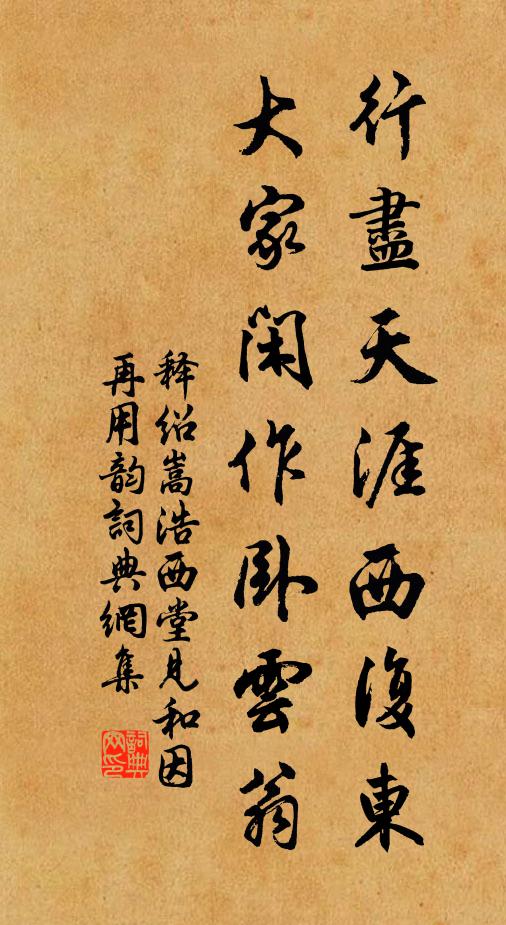 行盡天涯西復東
大家閑作臥雲翁
释绍嵩浩西堂見和因
再用韵詞典網集
詞典網印